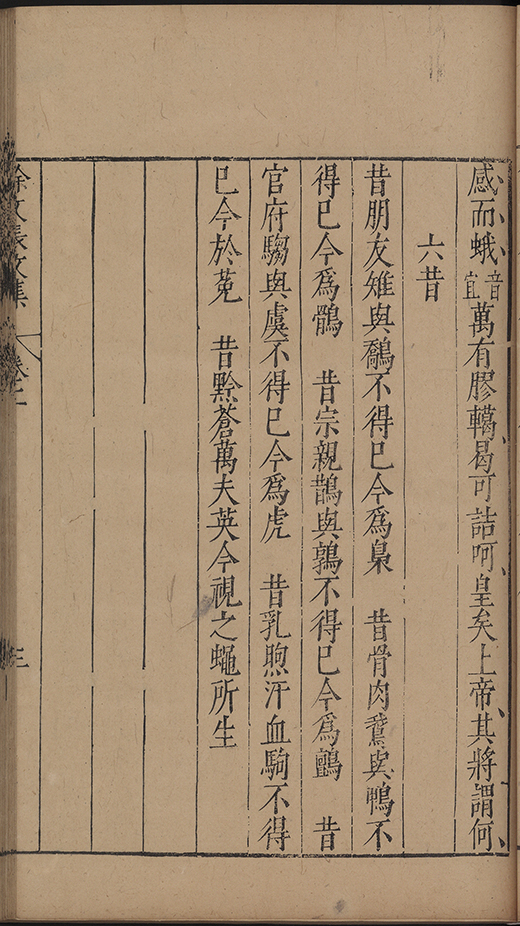 感而蛾音宜萬有膠轕曷可詰呵皇矣上帝其將謂何
六昔
昔朋友雉與鷸不得已今爲梟　昔骨肉鵞與鴨不
得已今爲鶻　昔宗親鵲與鶉不得已今爲鸇　昔
官府騶與虞不得已今爲虎　昔乳煦汗血駒不得
已今於菟　昔黔蒼萬夫英今視之蠅所生
徐文長文集　卷二　三